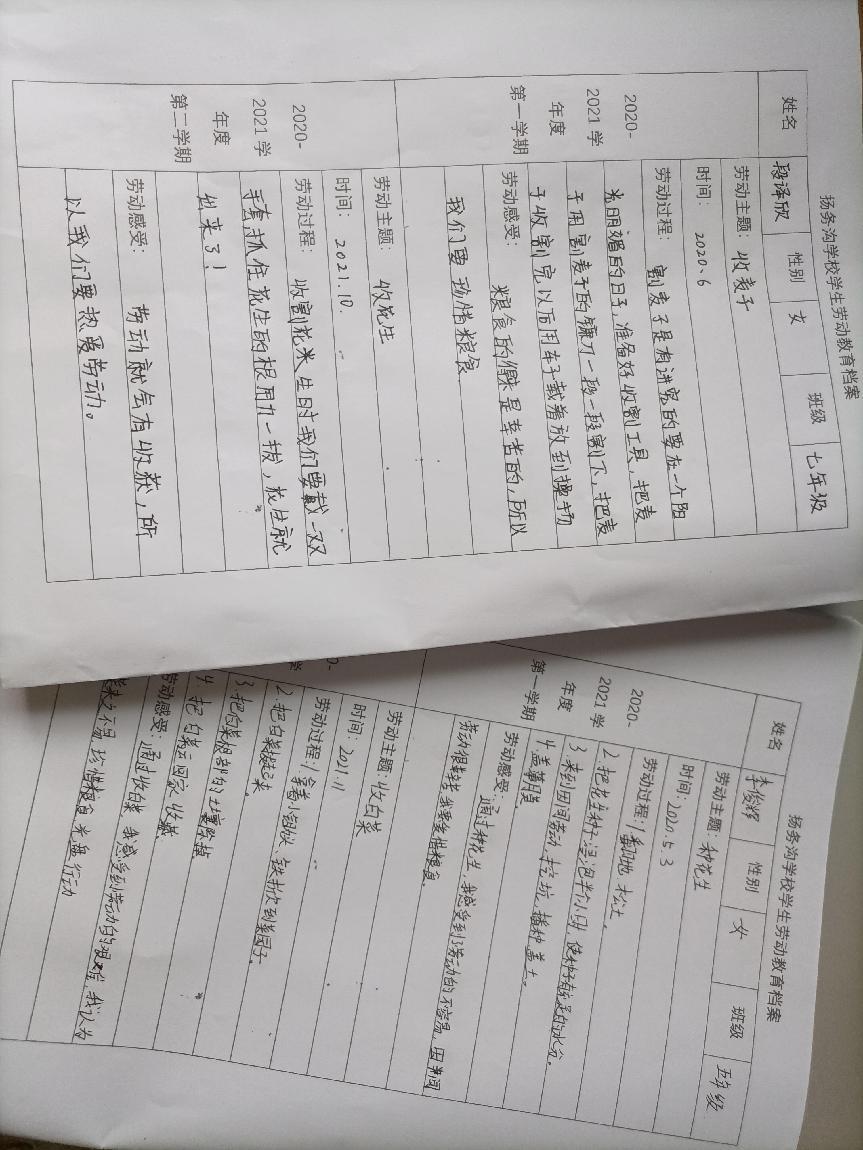 扬务沟学校学生劳动教育档案
姓名 段译欣 性别 女 班级 七年级
2020-
2021 学
年度
第一学期
劳动主题：收麦子
时间：2020、6
劳动过程：割麦子是有进宽的要在一个阳
光明媚的日子，准备好收割工具，把麦
子用割麦子的镰刀一段一段割下，把麦
子收割完以后用车子载着放到操场
劳动感受：粮食的 是辛苦的，所以
我们要珍惜粮食
2020-
2021 学
年度
第二学期
劳动主题：收花生
时间：2021.10.
劳动过程：收割花米生时我们要戴一双
手套，抓住花生的根用力一拔，花生就
出来了！
劳动感受：劳动就会有收获，所
以我们要热爱劳动。
扬务沟学校学生劳动教育档案
姓名 李俊辉 性别 女 班级 五年级
2020-
2021 学
年度
第一学期
劳动主题：种花生
时间：2020.5.3
劳动过程：1翻地、松土。
2、把花生种子浸泡半个小时，使种子有充足的水分。
3、来到田间劳动，挖坑、播种、盖土。
4、盖薄膜
劳动感受：通过种花生，我感受到了劳动的不容易，田间
劳动很辛苦，我要爱惜粮食。
劳动主题：收白菜
时间：2021.11
劳动过程：1、拿着小 、铁 到菜园子。
2、把白菜 起来。
3、把白菜根部的土 掉
4、把白菜运回家收藏
劳动感受：通过收白菜，我感受到劳动的艰难，我认为
来之不易，珍惜粮食，光盘行动